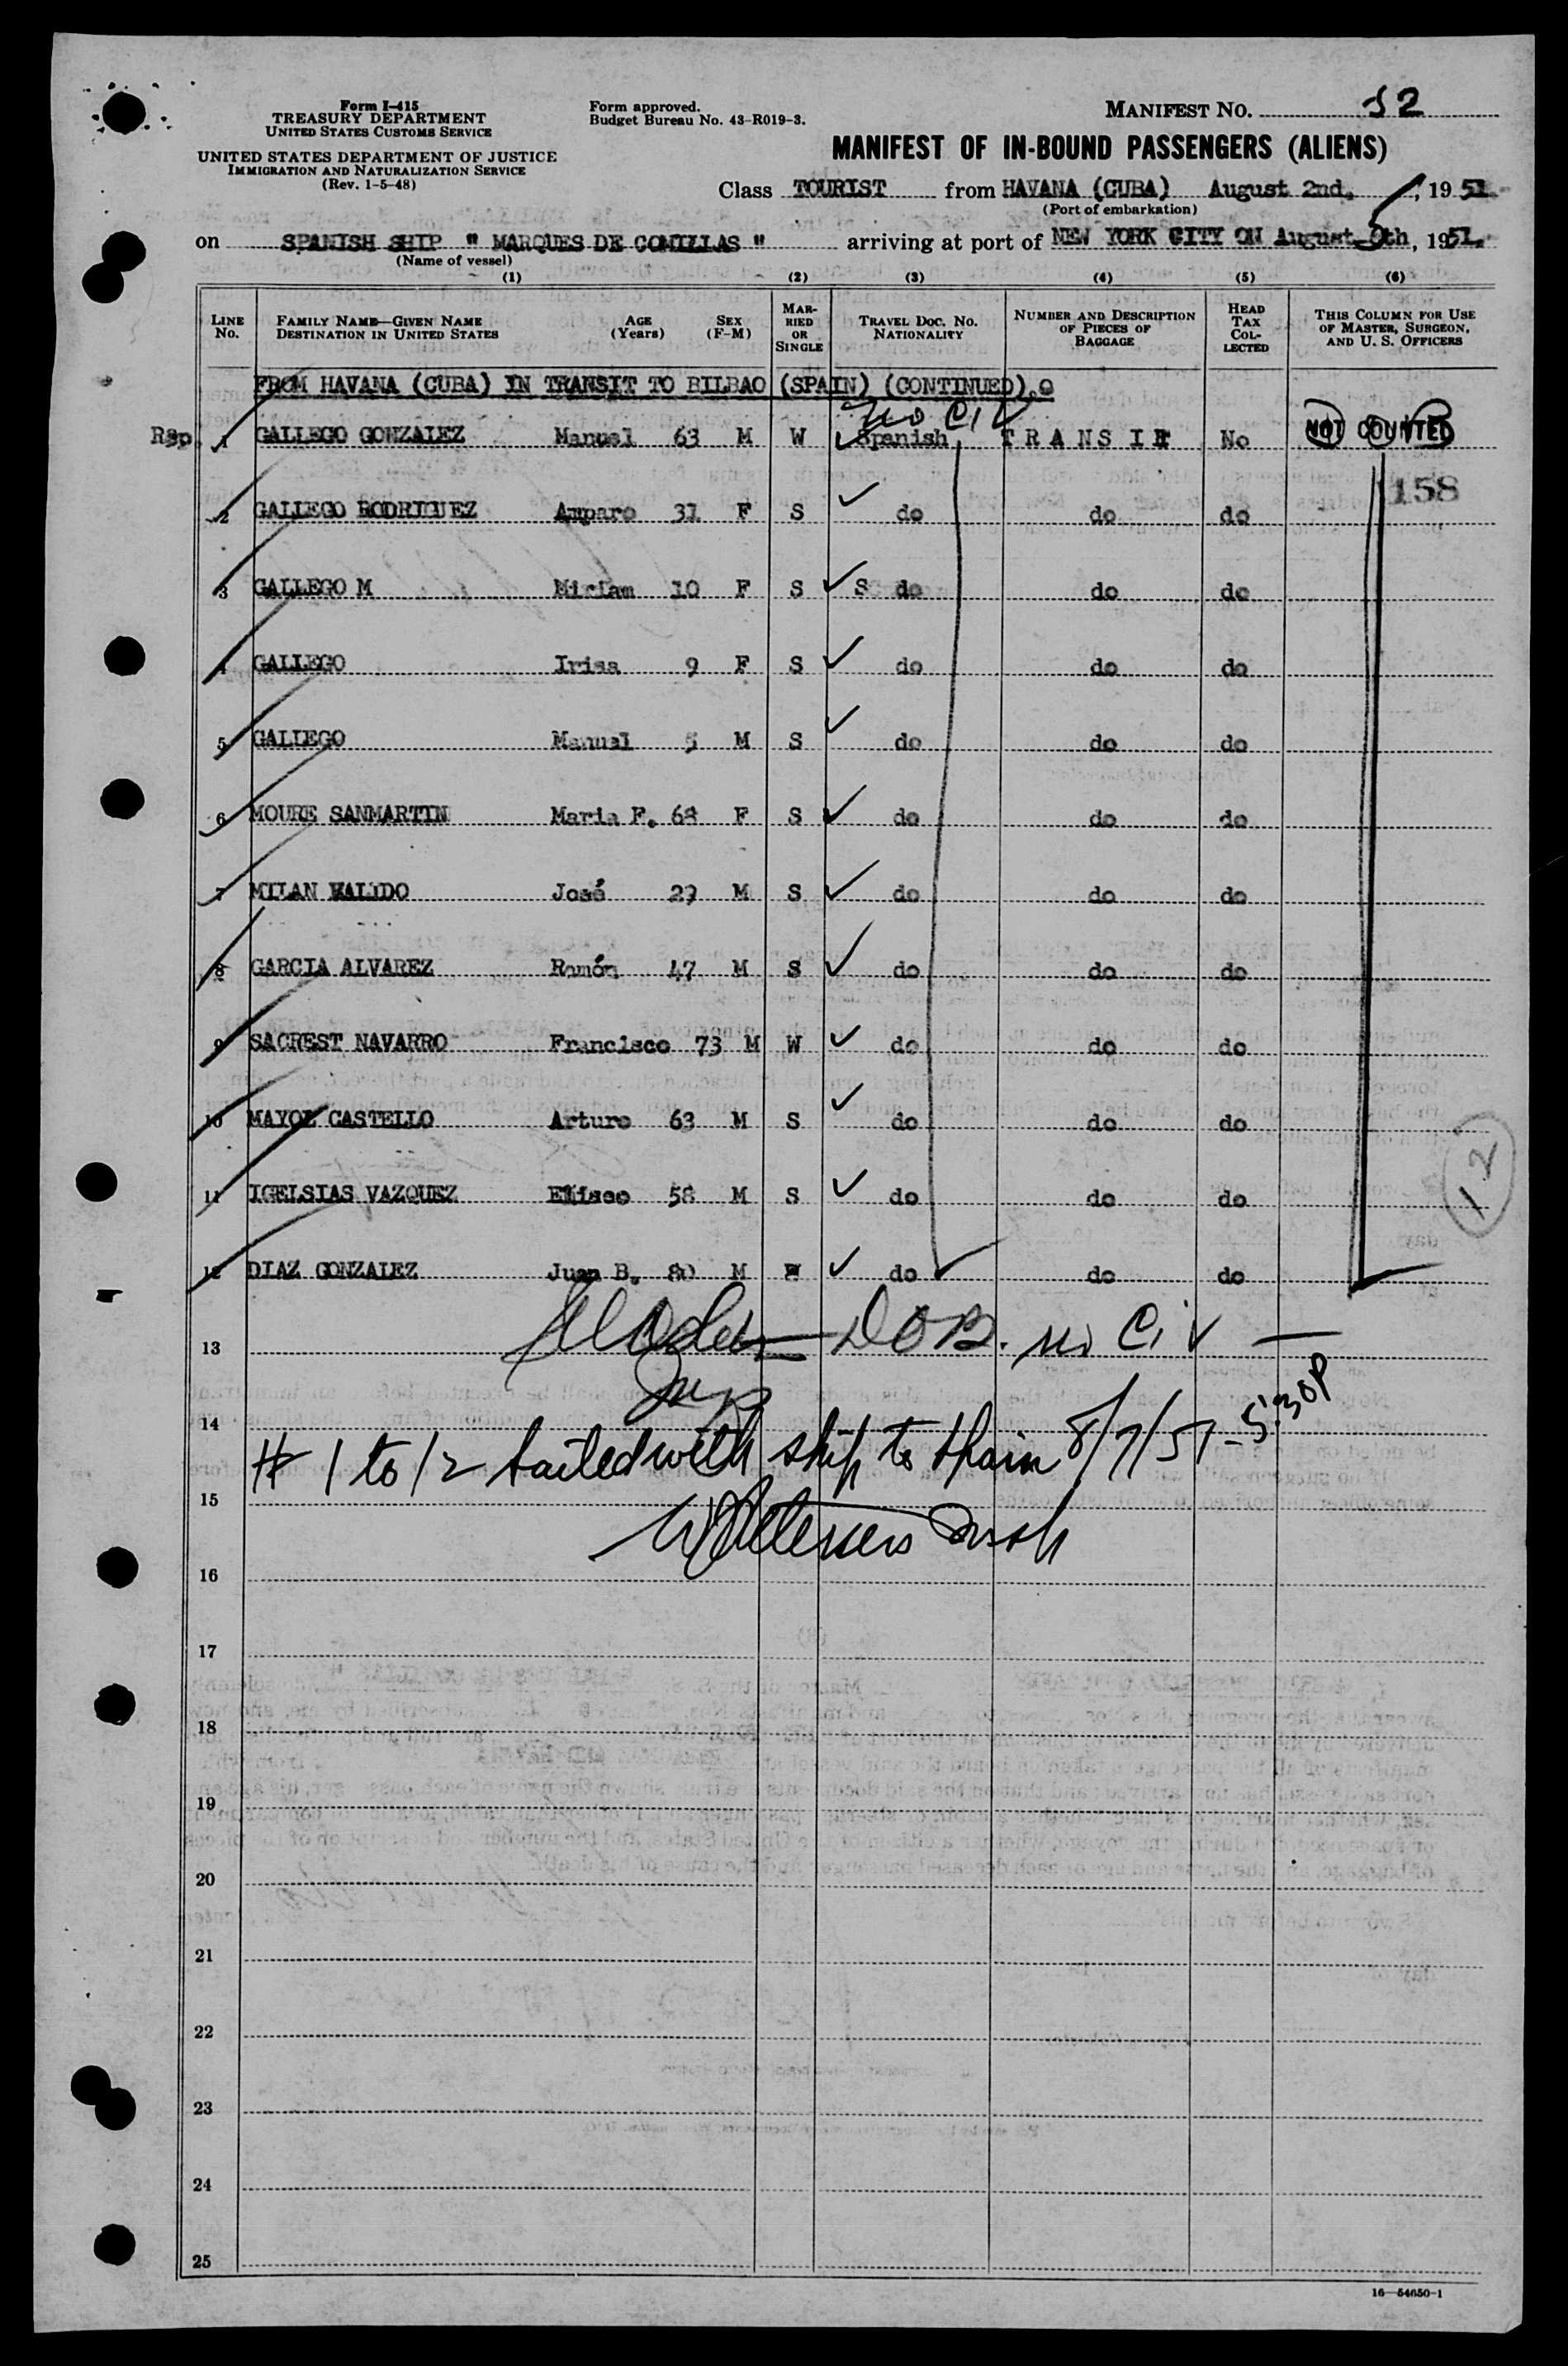 Form I-415
TREASURY DEPARTMENT
UNITED STATES CUSTOMS SERVICE
UNITED STATES DEPARTMENT OF JUSTICE
IMMIGRATION AND NATURALIZATION SERVICE
(Rev. 1-5-48)
Form approved.
Budget Bureau No. 43-R019-3.
MANIFEST NO. 12
MANIFEST OF IN-BOUND PASSENGERS (ALIENS)
Class TOURIST from HAVANA (CUBA) August 2nd, , 19 51
(Port of embarkation)
on SPANISH SHIP " MARQUES DE COMILLAS " arriving at port of NEW YORK CITY ON August th, 1951.
(Name of vessel)
(1) (2) (3) (4) (5) (6)
LINE No. FAMILY NAME—GIVEN NAME DESTINATION IN UNITED STATES AGE (Years) SEX (F-M) MARRIED OR SINGLE TRAVEL DOC. NO. NATIONALITY NUMBER AND DESCRIPTION OF PIECES OF BAGGAGE HEAD TAX COLLECTED THIS COLUMN FOR USE OF MASTER, SURGEON, AND U. S. OFFICERS
FROM HAVANA (CUBA) IN TRANSIT TO BILBAO (SPAIN) (CONTINUED).
no CIV
Rsp. 1 GALLEGO GONZALEZ Manuel 63 M W Spanish TRANSIT No NOT COUNTED
158
2 GALLEGO RODRIGUEZ Amparo 31 F S do do do
3 GALLEGO M Miriam 10 F S S do do do
4 GALLEGO Iriss 9 F S do do do
5 GALLEGO Manual 5 M S do do do
6 MOURE SANMARTIN Maria F. 68 F S do do do
7 MILAN José 29 M S do do do
8 GARCIA ALVAREZ Ramón 47 M S do do do
9 SACREST NAVARRO Francisco 73 M W do do do
10 MAYOL CASTELLO Arturo 63 M S do do do
11 IGELSIAS VAZQUEZ Eliseo 58 M S do do do
12
12 DIAZ GONZALEZ Juan B. 80 M do do do
13 DOB. no CIV —
14
# 1 to 12 sailed with ship to Spain 8/7/51 - 5:30P
15
16
17
18
19
20
21
22
23
24
25
16—54650-1